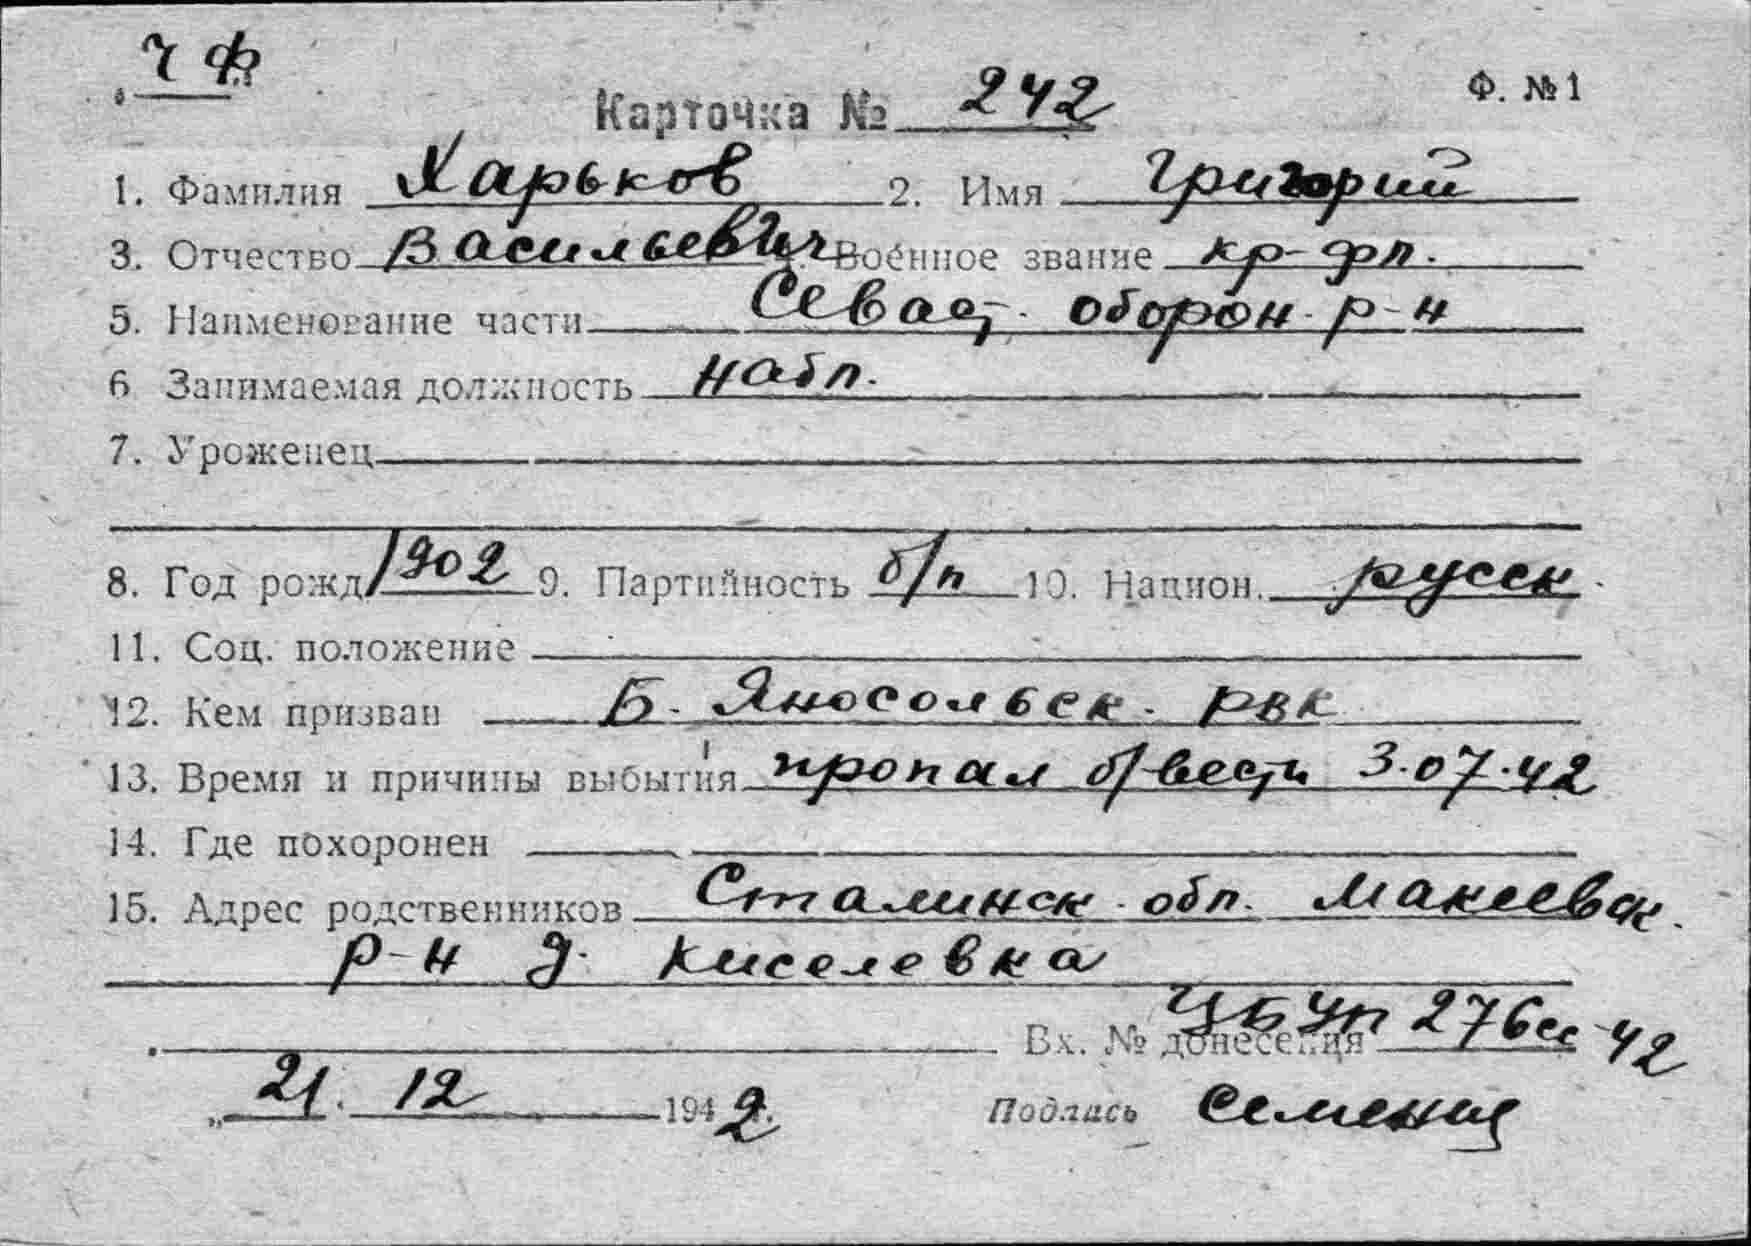 ЧФ
Карточка № 242 Ф. №1
1. Фамилия Харьков 2. Имя Григорий
3. Отчество Васильевич Военное звание кр-фл.
5. Наименование части Севаст. оборон. р-н
6 Занимаемая должность набл.
7. Уроженец
8. Год рожд 1902 9. Партийность б/п 10. Национ. русск.
11. Соц. положение
12. Кем призван Б. Яносольск. РВК
13. Время и причины выбытия пропал б/вести 3.07.42
14. Где похоронен
15. Адрес родственников Сталинск. обл. Макеевск.
р-н д. Киселевка
Вх. № донесения ЦБУп 276сс-42
„ 21. 12 1942 г. Подпись Семениц